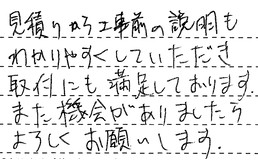 見積りから工事前の説明も
わかりやすくしていただき
取付にも満足しております.
また機会がありましたら
よろしくお願いします.